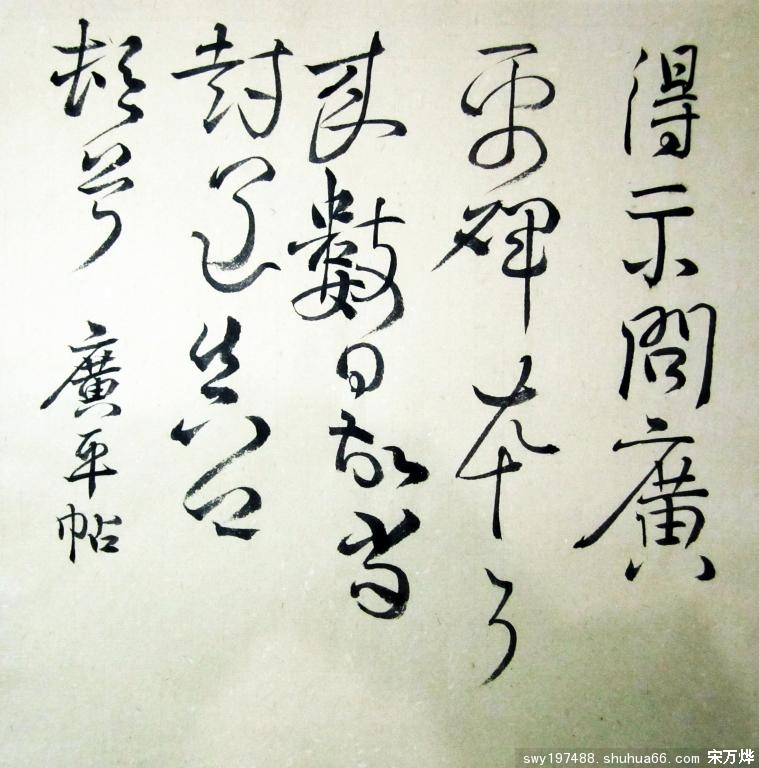 得示問廣
平碑本了
來數日故當
封送真卿
頓首
廣平帖
swy197488.shuhua66.com 宋万烨